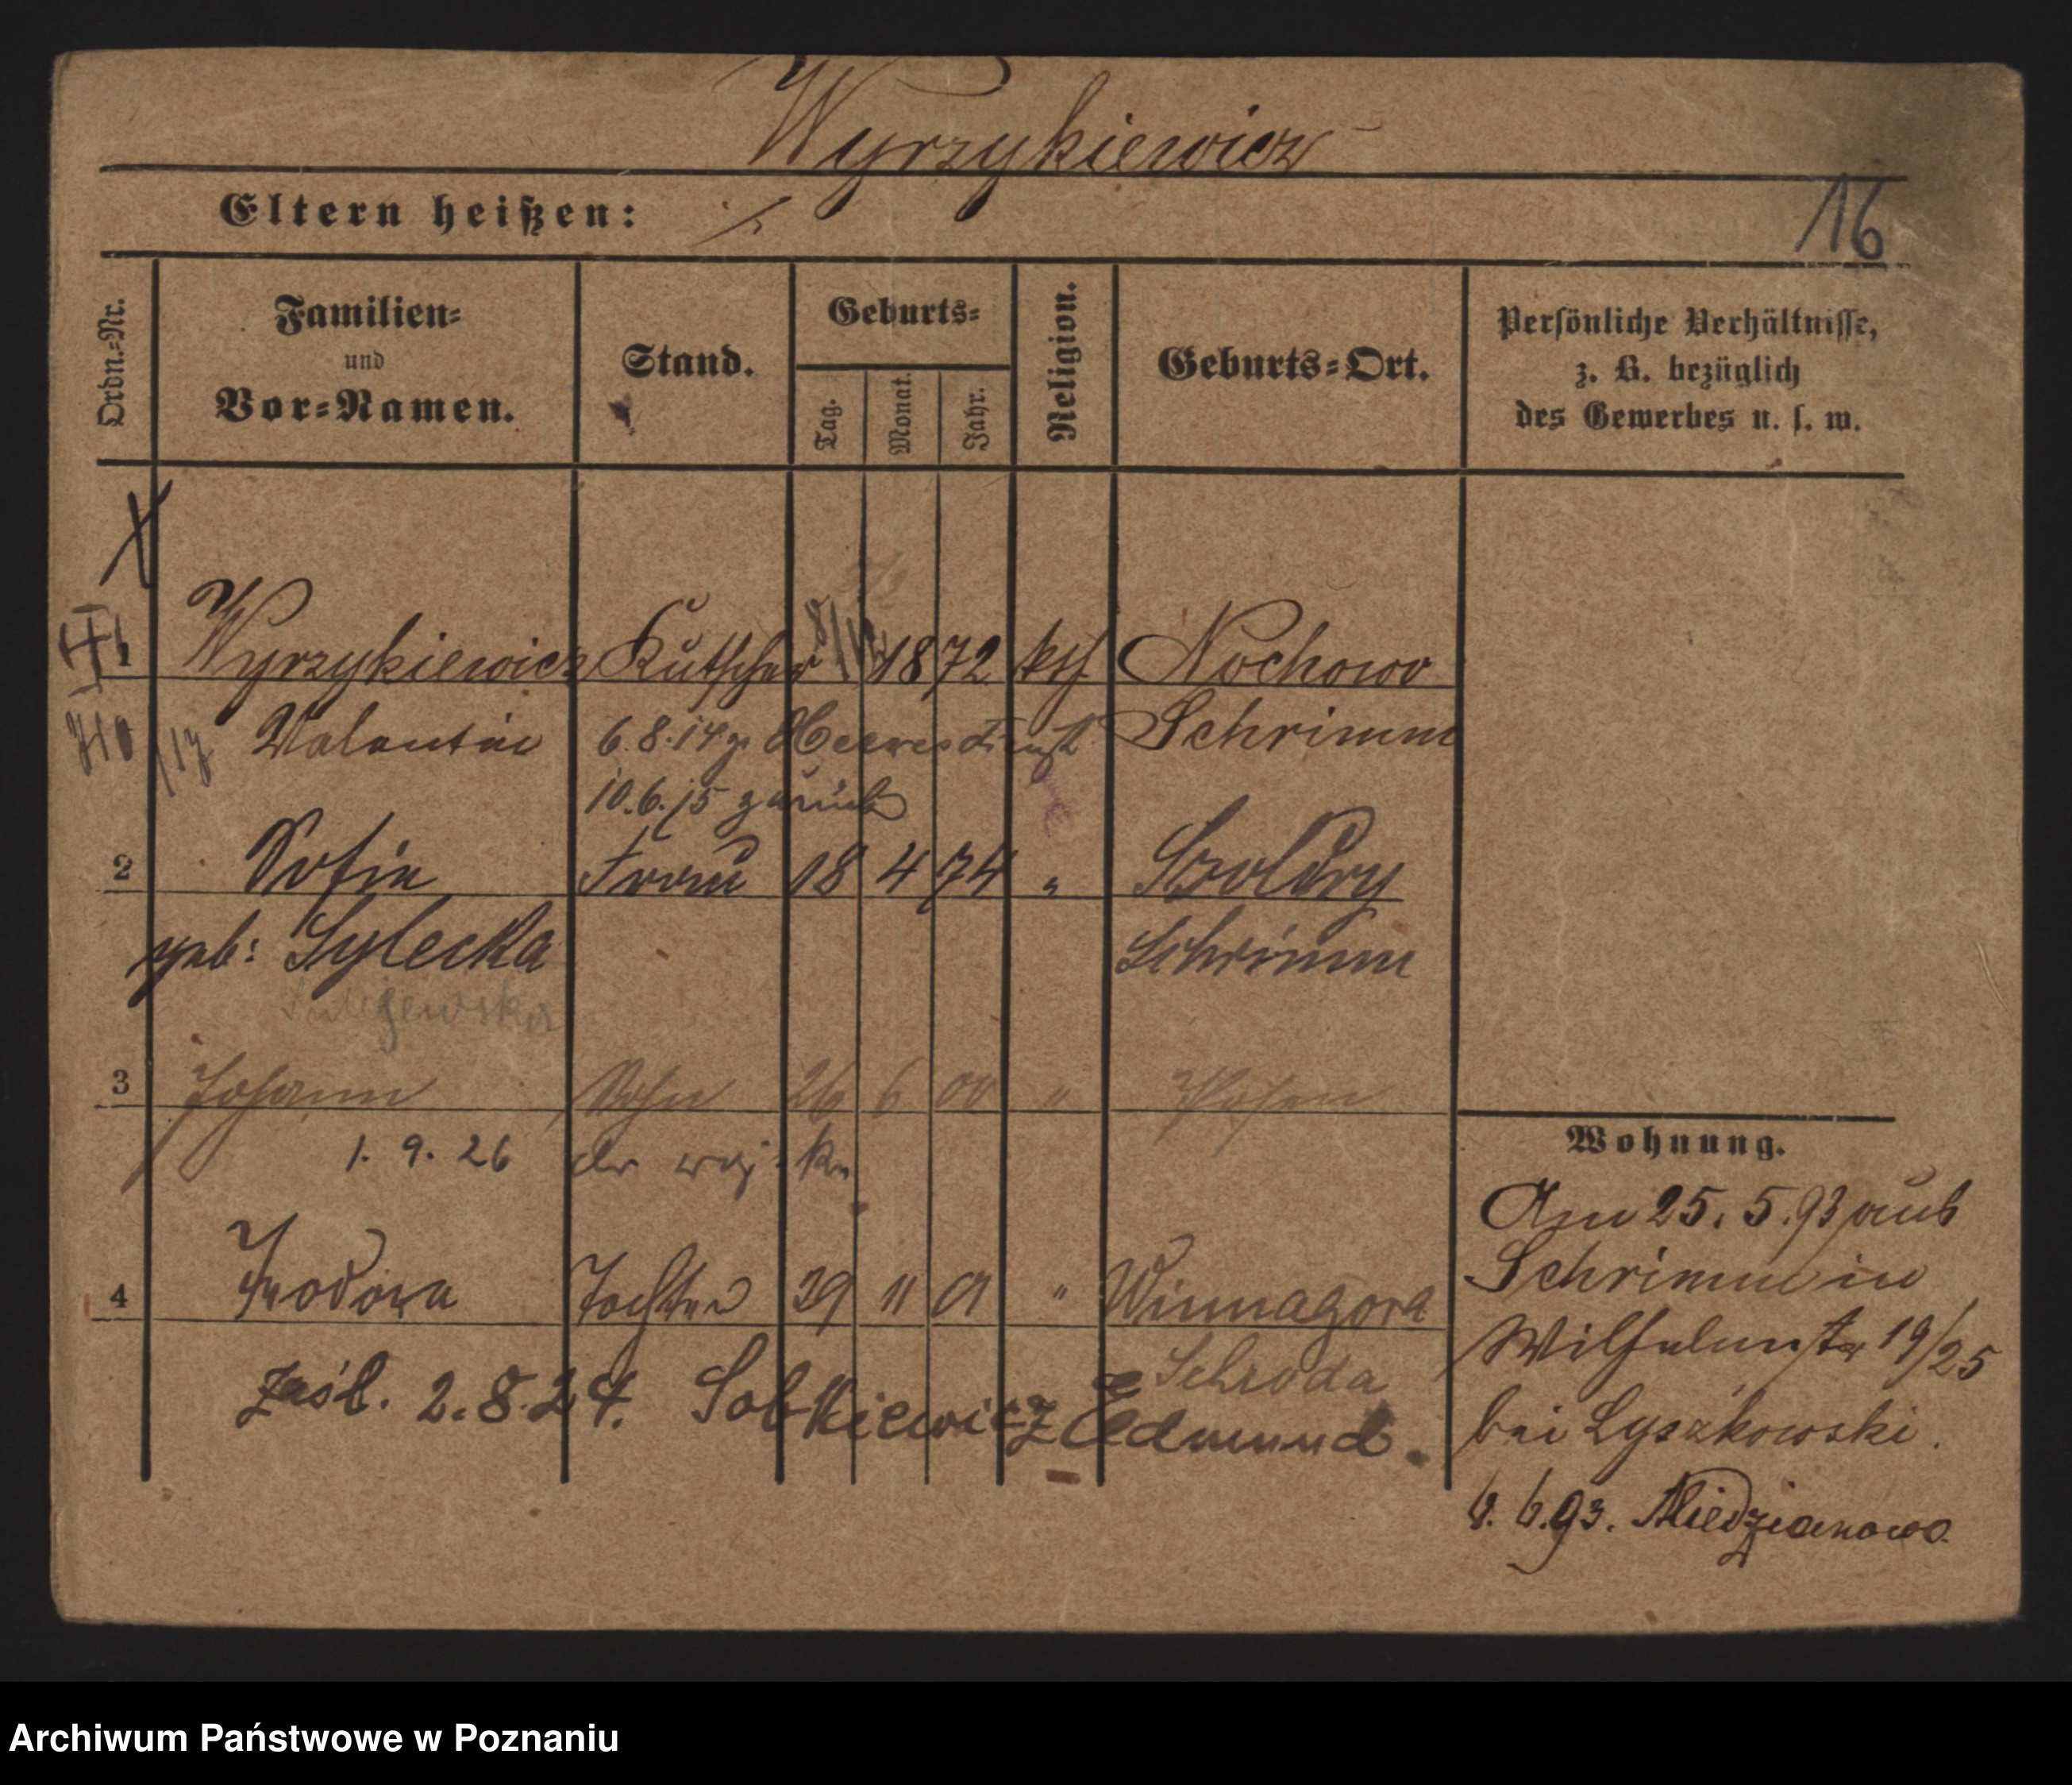 Wyrzykiewicz
Eltern heißen:
16
Ordn.-Nr.
Familien-
und
Vor-Namen.
Stand.
Geburts-
Tag.
Monat.
Jahr.
Religion.
Geburts-Ort.
Persönliche Verhältnisse,
z. B. bezüglich
des Gewerbes u. s. w.
1 Wyrzykiewicz Kutscher 1872 kth Nochowo
Valentin 6.8.14 z. Heeresdienst Schrimm
10.6.15 zurück
2 Sofia Frau 18 4 74 " Szoldry
geb: Sylecka Schrimm
3 Johann Sohn 26 6 00 " Posen
1. 9. 26 do
4 Teodora Tochter 29 11 01 " Winnagora
Schroda
zaśl. 2.8.24. Sobkiewicz Edmund.
Wohnung.
Am 25. 5. 93 aus
Schrimm in
Wilhelmstr 19/25
bei Lyszkowski.
6. 6. 93. Miedzianowo
Archiwum Państwowe w Poznaniu